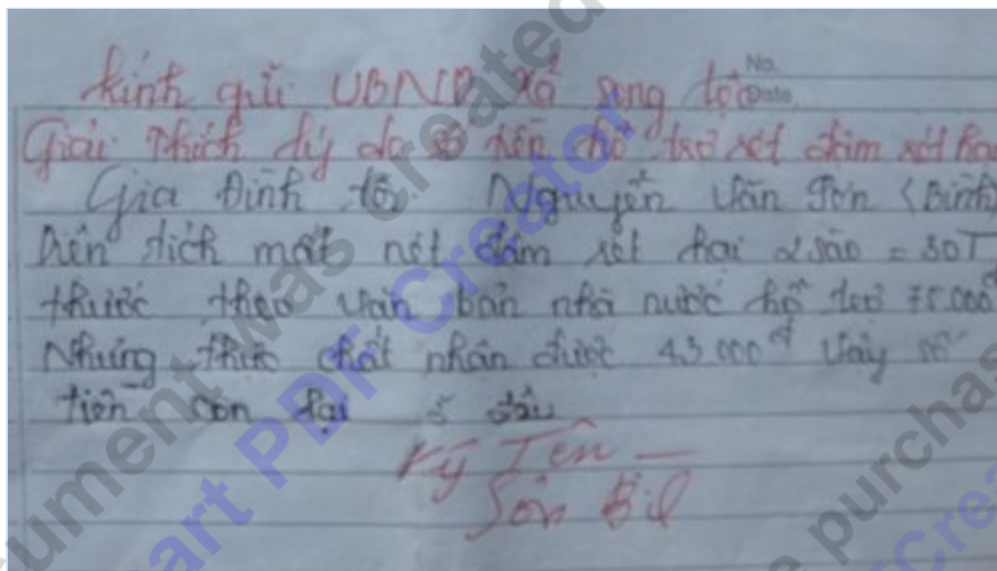 kính gửi UBND xã song lộc
No.
Date
Giải thích lý do số tiền hỗ trợ rét đậm rét hại
Gia Đình tôi Nguyễn Văn Sơn (Bình)
Diên tích mất nét đậm rét hại 2 sào = 30T
thước theo văn bản nhà nước hỗ trợ 75.000đ
Nhưng thực chất nhân được 43.000đ Vậy số
tiền còn lại ở đâu
Ký Tên —
Sơn